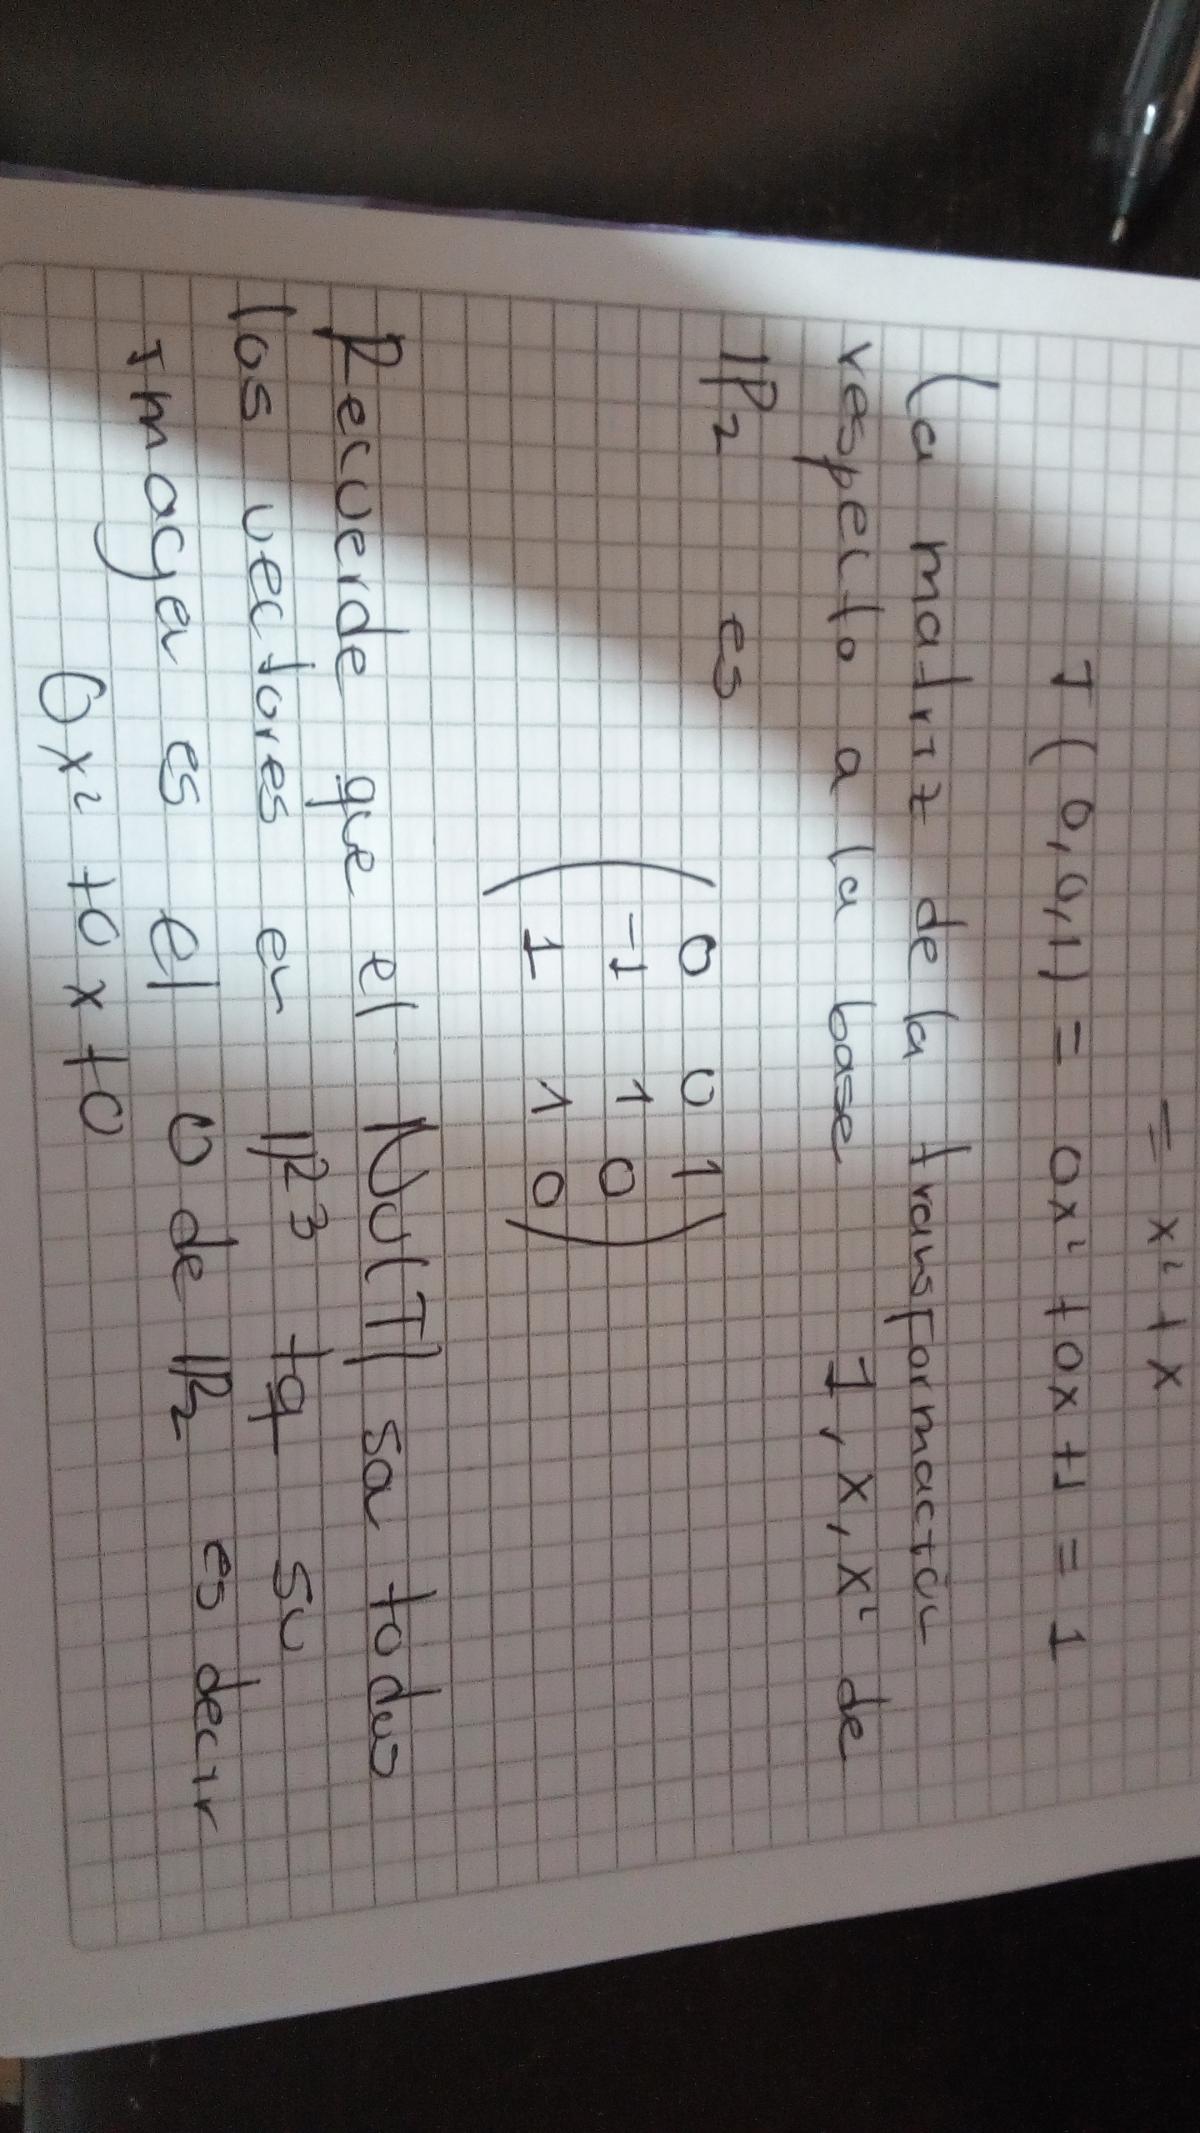 = x² + x
T (0,0,1) = 0x² + 0x + 1 = 1
La matriz de la transformación
respecto a la base 1, x, x² de
IP₂ es
( 0 0 1
-1 1 0
1 1 0 )
Recuerde que el Nu(T) sa todos
los vectores en IR3 tq su
Imagen es el 0 de IP₂ es decir
0x² + 0x + 0